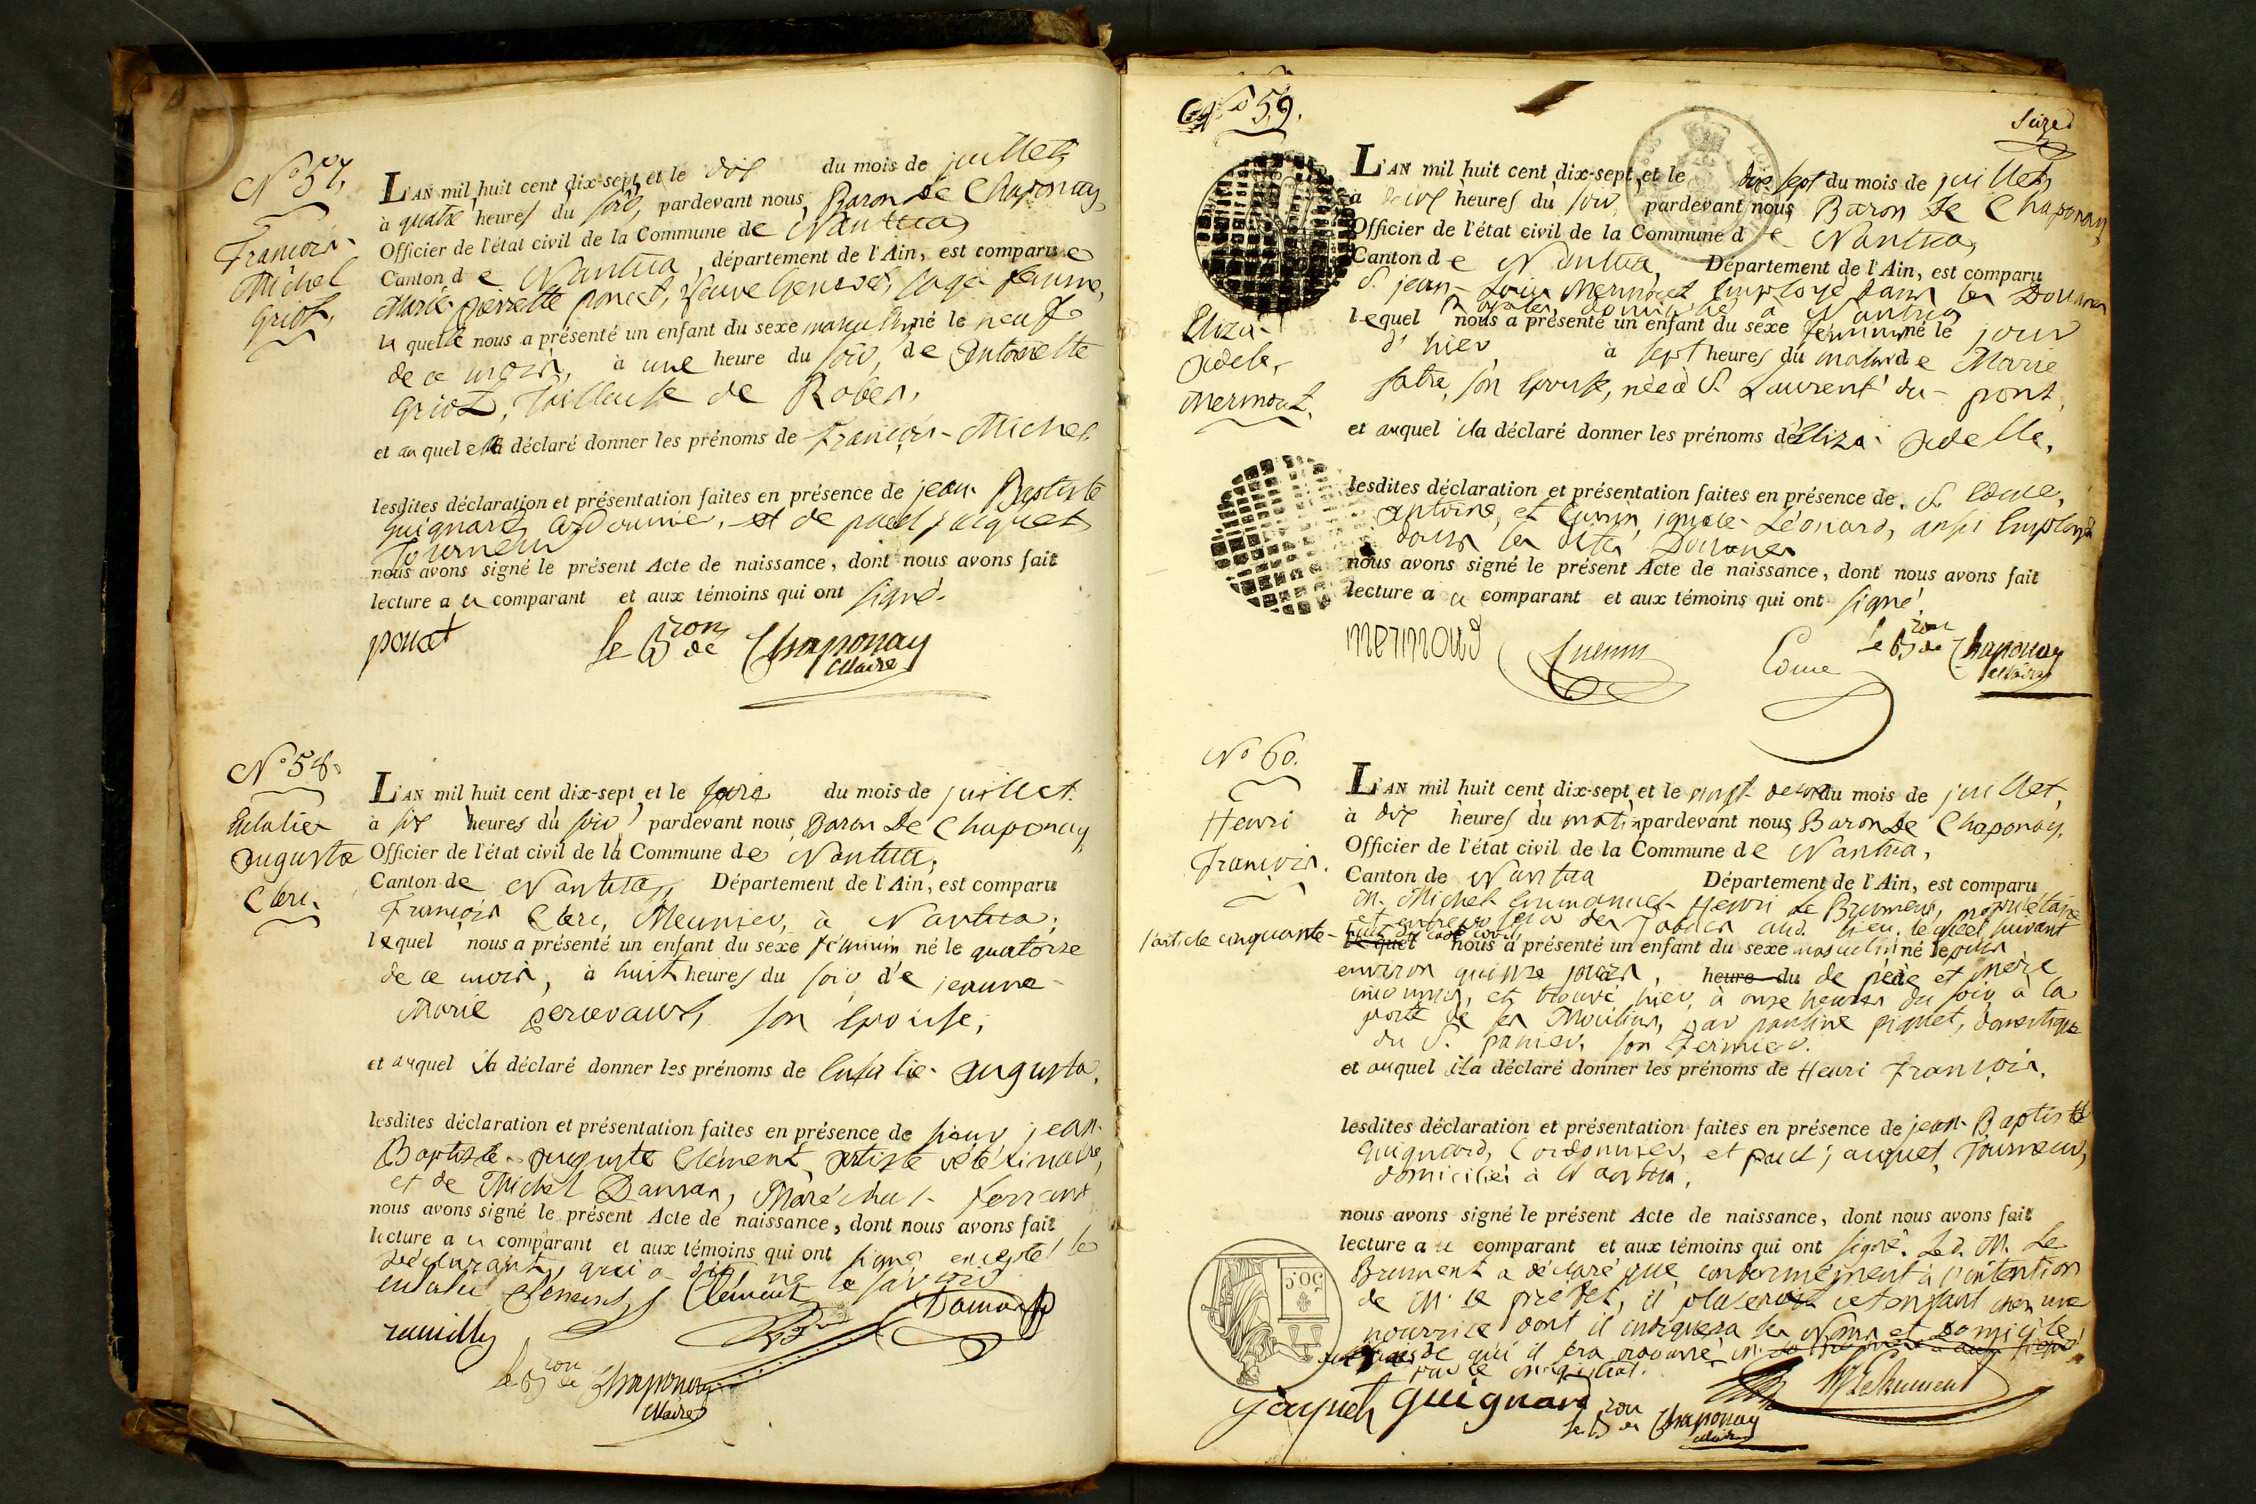 N° 57,
François-
Michel
Griot,
L'AN mil huit cent dix-sept, et le dix du mois de juillet,
à quatre heures du soir, pardevant nous, Baron de Chaponay,
Officier de l'état civil de la Commune de Nantua
Canton de Nantua, département de l'Ain, est comparue
Marie pierrette poncet, veuve sage femme,
la quelle nous a présenté un enfant du sexe masculin né le neuf
de ce mois, à une heure du soir, de Antoinette
Griot, tailleuse de Robes,
et au quel elle a déclaré donner les prénoms de François-Michel
lesdites déclaration et présentation faites en présence de jean Baptiste
Guignard, cordonnier, et de paul jacquet
Tourneur
nous avons signé le présent Acte de naissance, dont nous avons fait
lecture a la comparant et aux témoins qui ont signé.
poncet
le Bron de Chaponay
Maire
N° 58.
Eulalie
augusta
Clerc.
L'AN mil huit cent dix-sept, et le seize du mois de juillet.
à six heures du soir, pardevant nous, Baron de Chaponay,
Officier de l'état civil de la Commune de Nantua,
Canton de Nantua, Département de l'Ain, est comparu
François Clerc, Meunier, à Nantua;
lequel nous a présenté un enfant du sexe féminin né le quatorze
de ce mois, à huit heures du soir de jeanne-
Marie percevaux, son épouse;
et auquel il a déclaré donner les prénoms de Eulalie-augusta.
lesdites déclaration et présentation faites en présence de sieur jean-
Baptiste-auguste Clément, artiste vétérinaire,
et de Michel Daman, Maréchal-ferrant
nous avons signé le présent Acte de naissance, dont nous avons fait
lecture a u comparant et aux témoins qui ont signé, excepté le
déclarant, qui a dit ne le savoir
eulalie Clément Clément
rumilly
Daman
le Bron de Chaponay
Maire
N° 59.
Seize
Eliza-
adele,
Mermout.
L'AN mil huit cent dix-sept, et le dix-sept du mois de juillet,
à deux heures du soir, pardevant nous Baron de Chaponay
Officier de l'état civil de la Commune de Nantua,
Canton de Nantua, Département de l'Ain, est comparu
S. jean-Louis Mermout Employé dans les Douanes
Royales, domicilié à Nantua
lequel nous a présenté un enfant du sexe féminin né le jour
d'hier, à sept heures du matin de Marie
fatre, son épouse, née à St Laurent du-pont,
et auquel il a déclaré donner les prénoms d'Eliza-adelle.
lesdites déclaration et présentation faites en présence de S. Come,
antoine, et Cuenin, ignace-Léonard, aussi Employés
dans les dites Douanes
nous avons signé le présent Acte de naissance, dont nous avons fait
lecture a u comparant et aux témoins qui ont signé.
mermoud
Cuenin
Come
le Bron de Chaponay
Maire
N° 60.
Henri
François.
L'AN mil huit cent dix-sept, et le vingt-deux du mois de juillet,
à dix heures du matin, pardevant nous, Baron de Chaponay,
Officier de l'état civil de la Commune de Nantua,
Canton de Nantua Département de l'Ain, est comparu
M. Michel Emmanuel Henri de Brument, propriétaire
et entreposeur des Tabacs aud. lieu, lequel suivant
l'article cinquante-huit du code civil,
lequel nous a présenté un enfant du sexe masculin né depuis
environ quinze jours, heure du de père et mère
inconnus, et trouvé hier, à onze heures du soir, à la
porte de ses Moulins, par pauline piquet, domestique
du S. panier, son fermier.
et auquel il a déclaré donner les prénoms de Henri François.
lesdites déclaration et présentation faites en présence de jean-Baptiste
Guignard, Cordonnier, et paul jacquet, Tourneur,
domiciliés à Nantua.
nous avons signé le présent Acte de naissance, dont nous avons fait
lecture a u comparant et aux témoins qui ont signé. Led. M. de
Brument a déclaré que, conformément à l'intention
de M. le préfet, il placeroit cet enfant chez une
nourrice dont il indiquera les Noms et domicile
de qui il sera
par ce magistrat.
50C
jacquet
guignard
le Bron de Chaponay
Maire